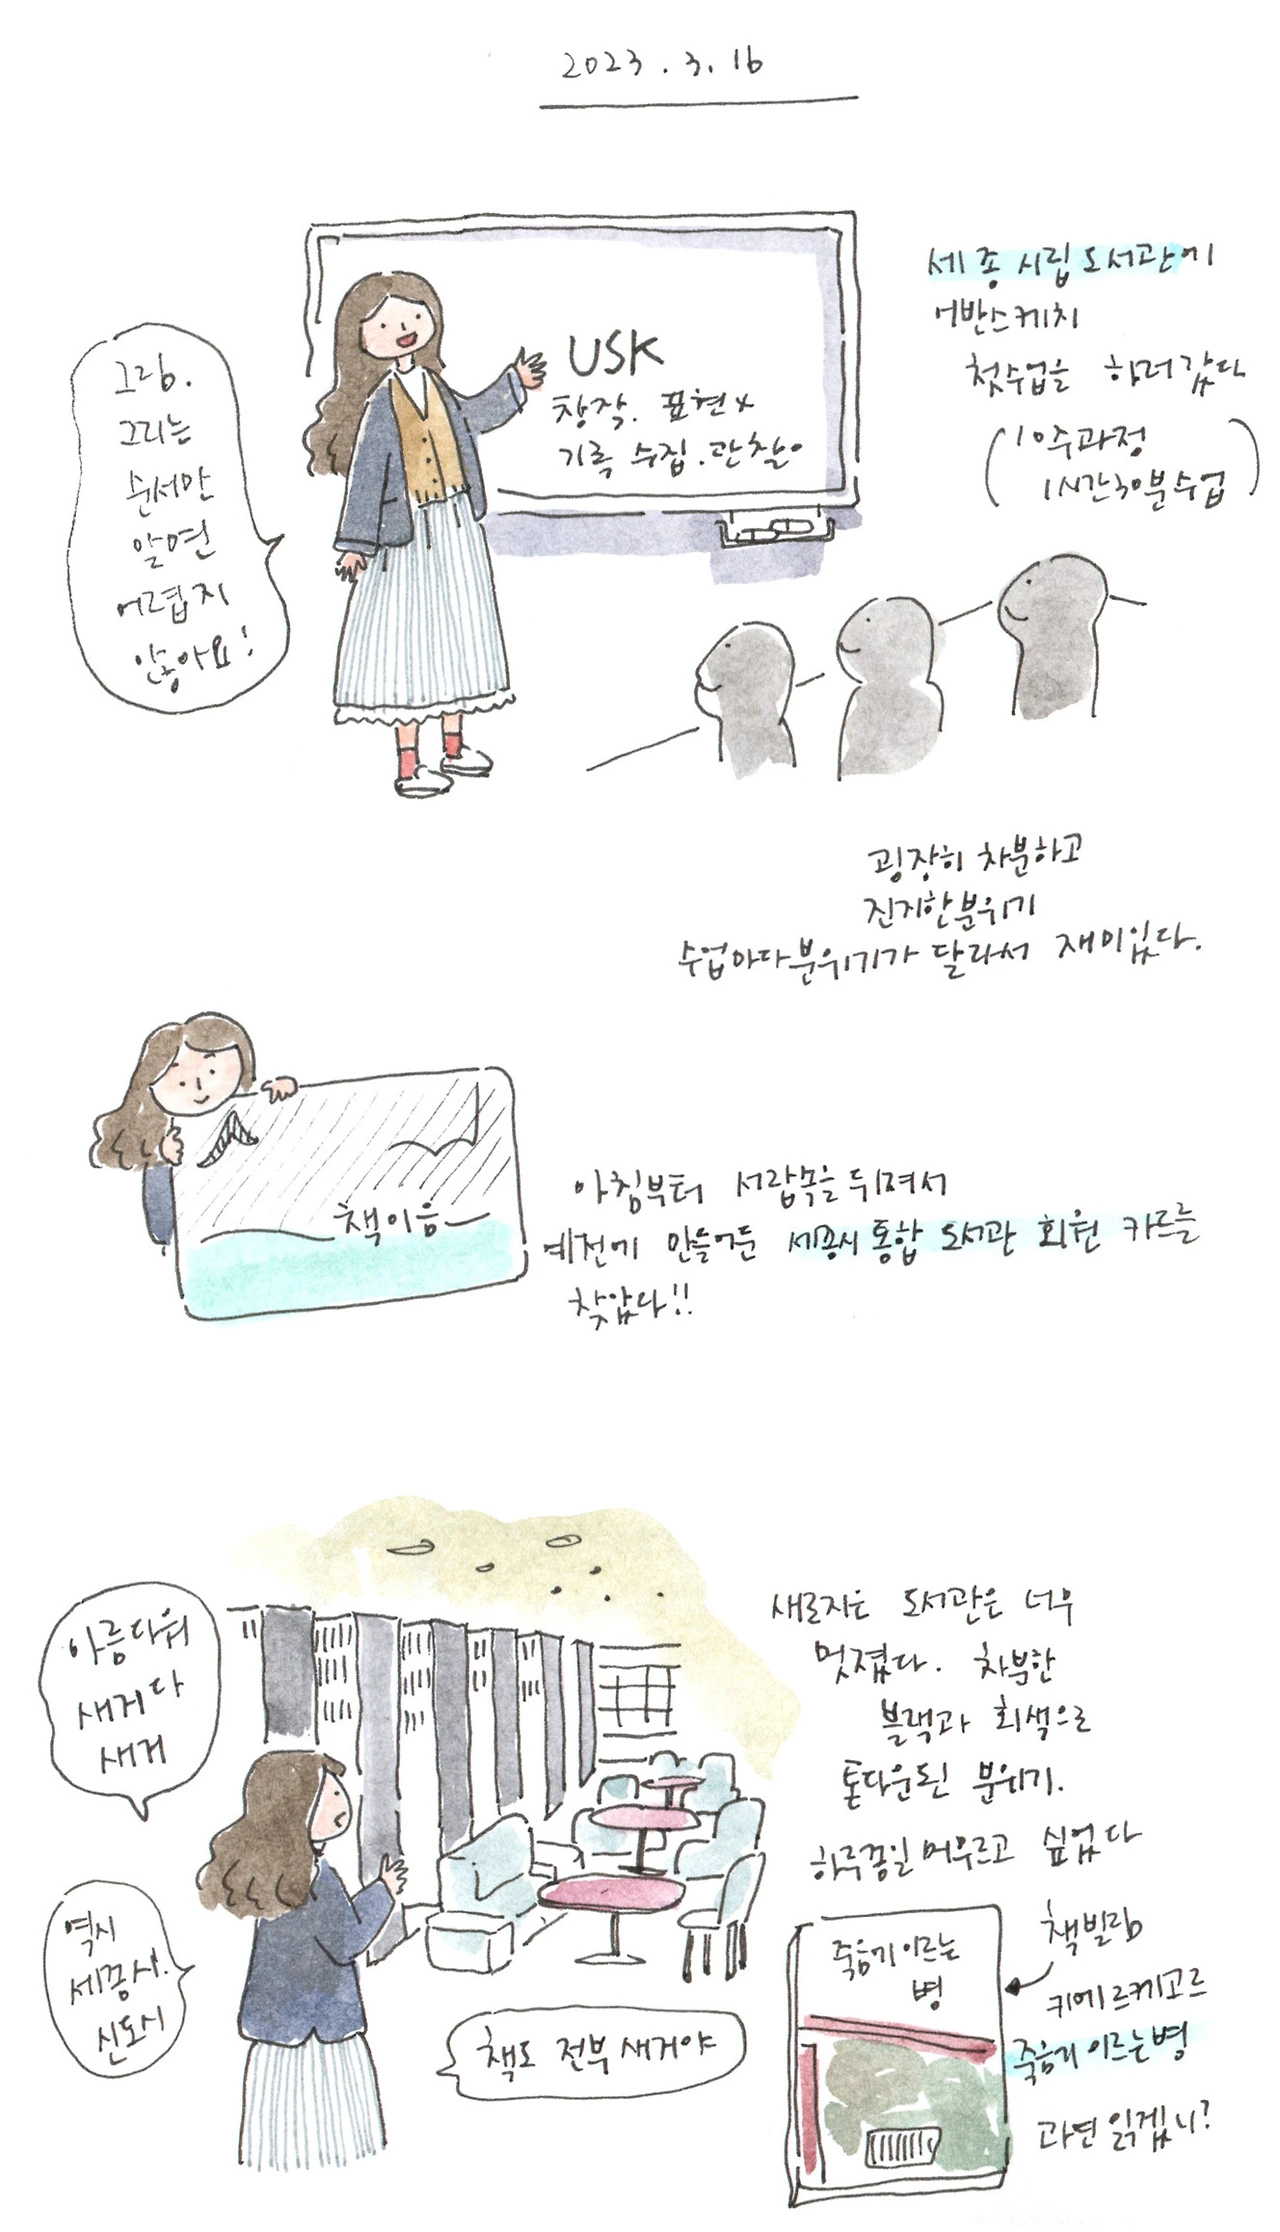 2023.3.16
USK
창작. 표현 x
기록 수집. 관찰 o
그림.
그리는
순서만
알면
어렵지
않아요!
세종 시립 도서관에
어반스케치
첫수업을 하러 갔다
(10주과정
1시간30분 수업)
굉장히 차분하고
진지한 분위기
수업마다 분위기가 달라서 재미있다.
책이음
아침부터 서랍속을 뒤져서
예전에 만들어둔 세종시 통합 도서관 회원 카드를
찾았다!!
아름다워
새거다
새거
새로지은 도서관은 너무
멋졌다. 차분한
블랙과 회색으로
톤다운된 분위기.
하루종일 머무르고 싶었다
역시
세종시.
신도시
책도 전부 새거야
죽음에 이르는
병
책빌림
키에르케고르
죽음에 이르는 병
과연 읽겠니?